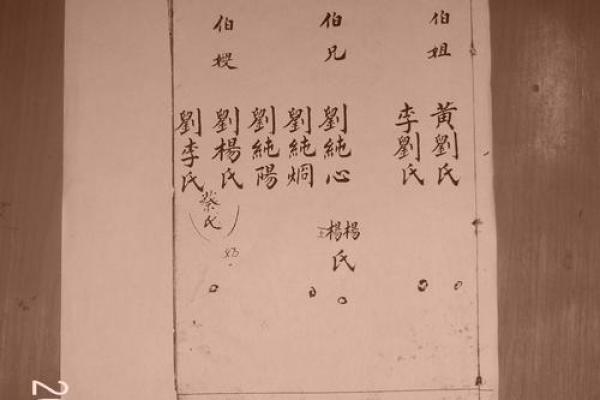 伯姐
黃劉氏
李劉氏
伯兄
劉純心
楊楊
氏
劉純烱
劉純陽
伯授
劉楊氏
劉李氏
蔡氏
20